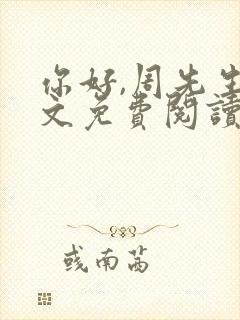 你好,周先生
文免費閱讀
或南茜